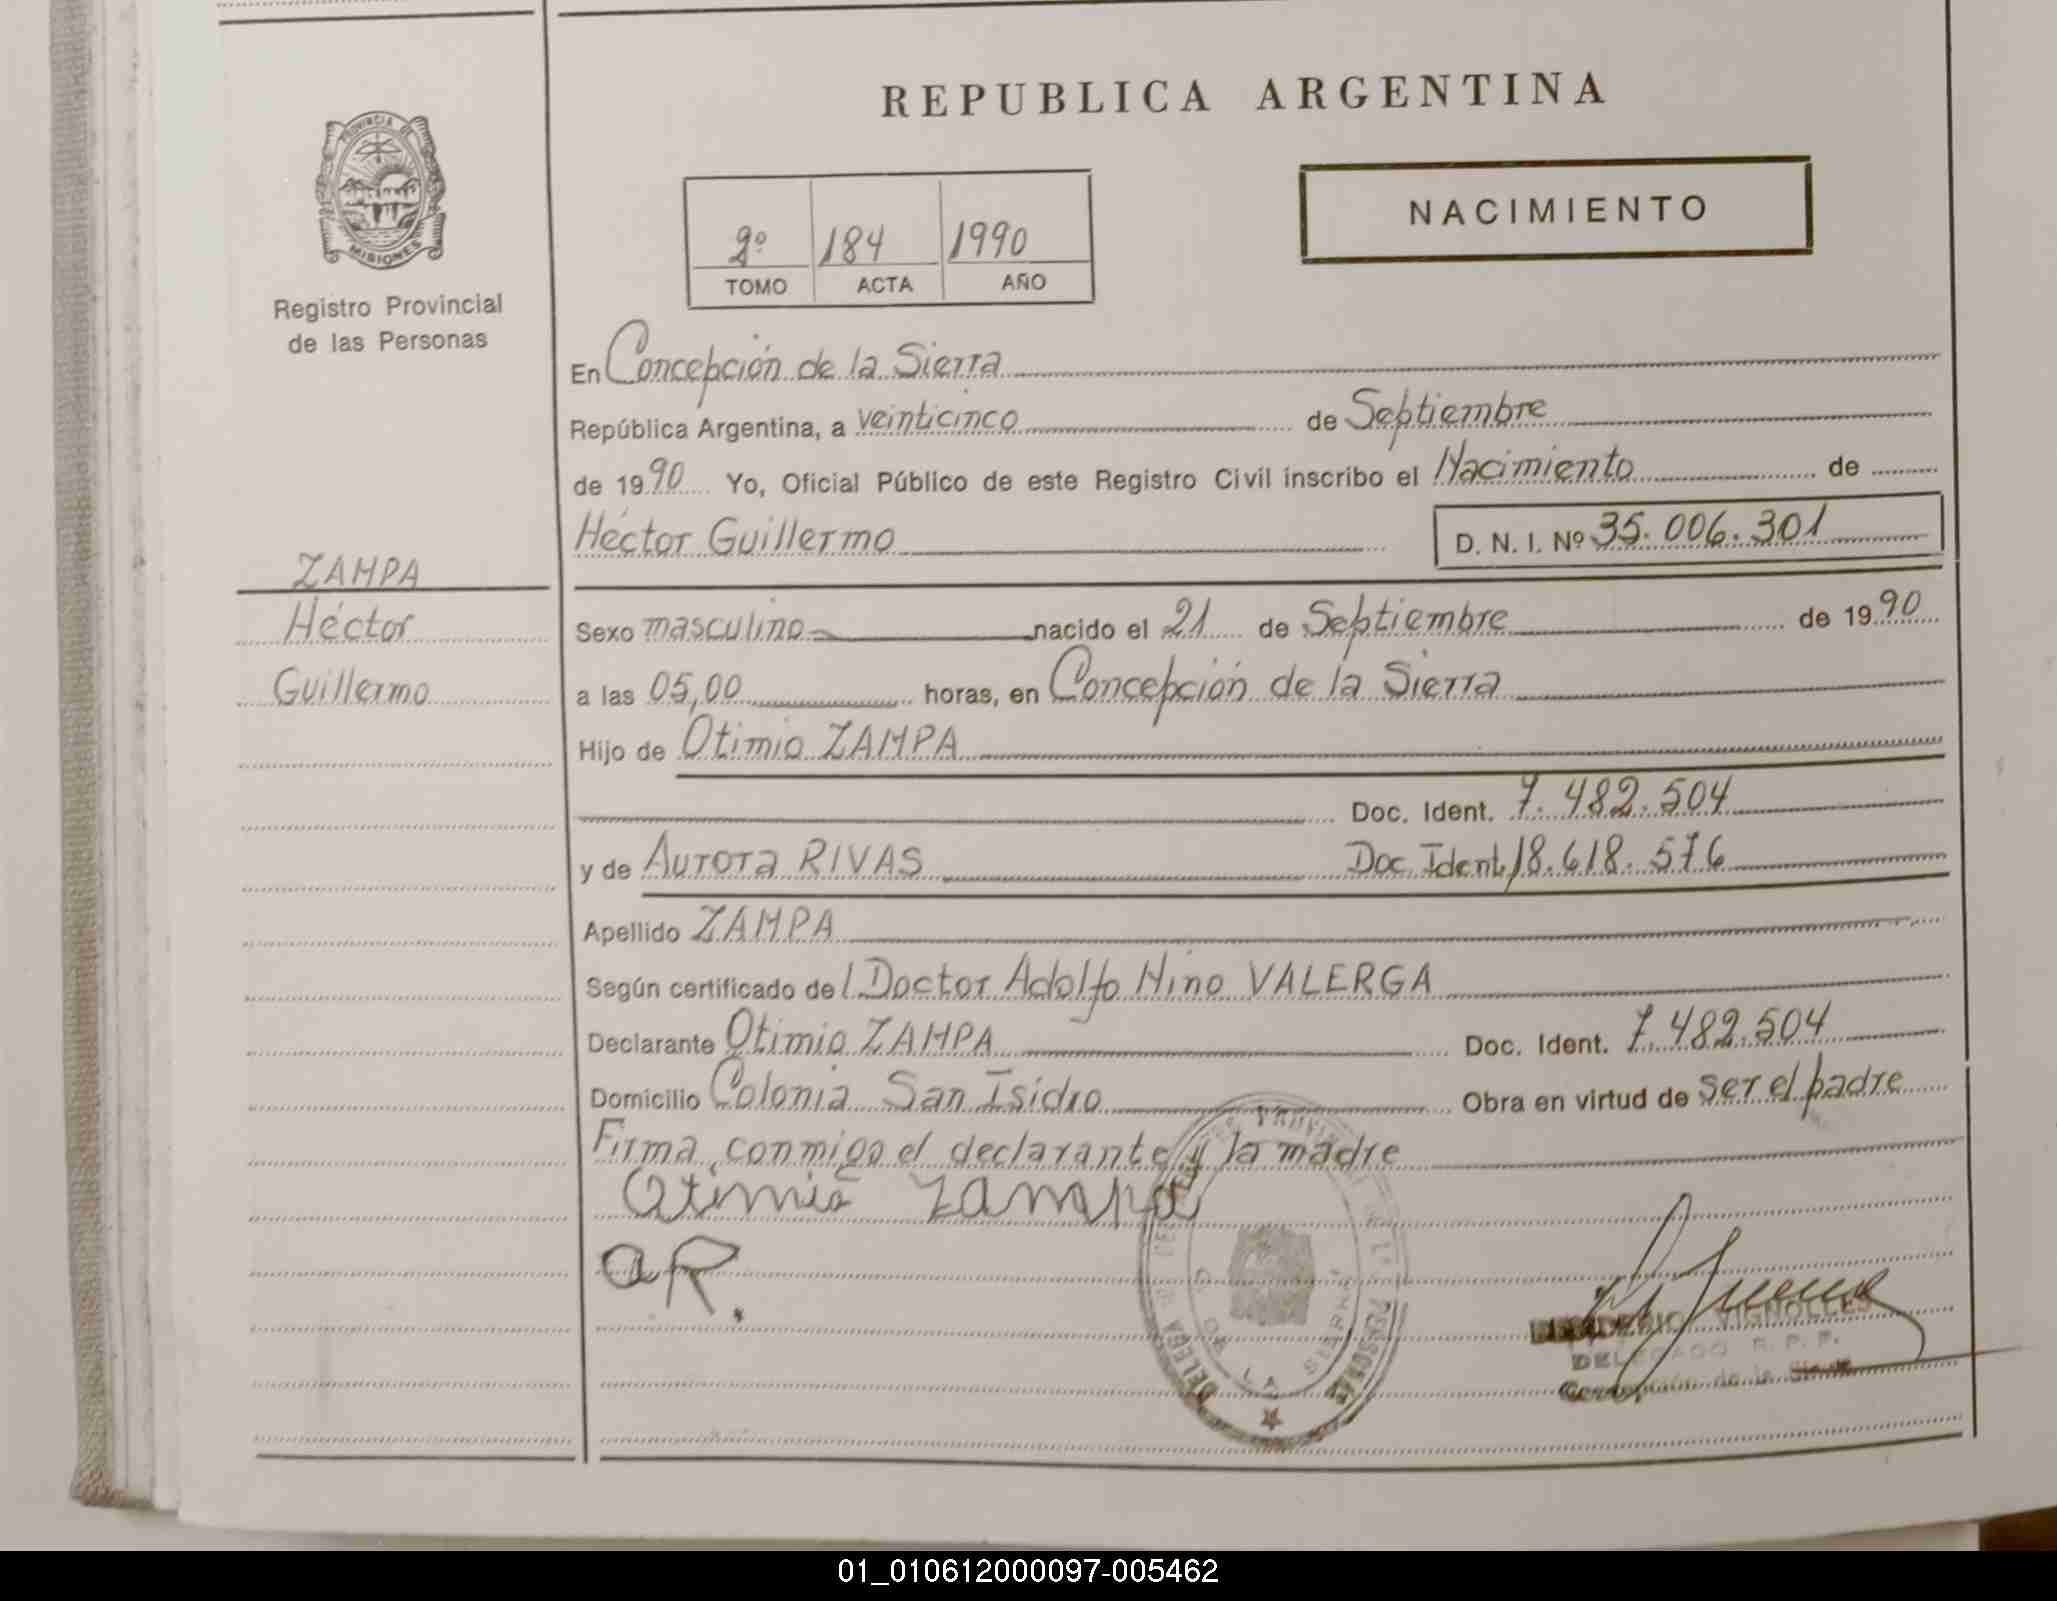 REPUBLICA ARGENTINA
PROVINCIA DE
MISIONES
Registro Provincial
de las Personas
2º 184 1990
TOMO ACTA AÑO
NACIMIENTO
En Concepción de la Sierra
República Argentina, a veinticinco de Septiembre
de 1990 Yo, Oficial Público de este Registro Civil inscribo el Nacimiento de
Héctor Guillermo D. N. I. Nº 35.006.301
ZAMPA
Héctor
Guillermo
Sexo masculino nacido el 21 de Septiembre de 1990
a las 05,00 horas, en Concepción de la Sierra
Hijo de Otimio ZAMPA
Doc. Ident. 7.482.504
y de Aurora RIVAS Doc. Ident. 18.618.576
Apellido ZAMPA
Según certificado del Doctor Adolfo Nino VALERGA
Declarante Otimio ZAMPA Doc. Ident. 7.482.504
Domicilio Colonia San Isidro Obra en virtud de ser el padre
Firma conmigo el declarante y la madre
Otimio Zampa
aR.
VIGNOLLES
DELEGADO R. P. P.
Concepción de la Sierra
01_010612000097-005462